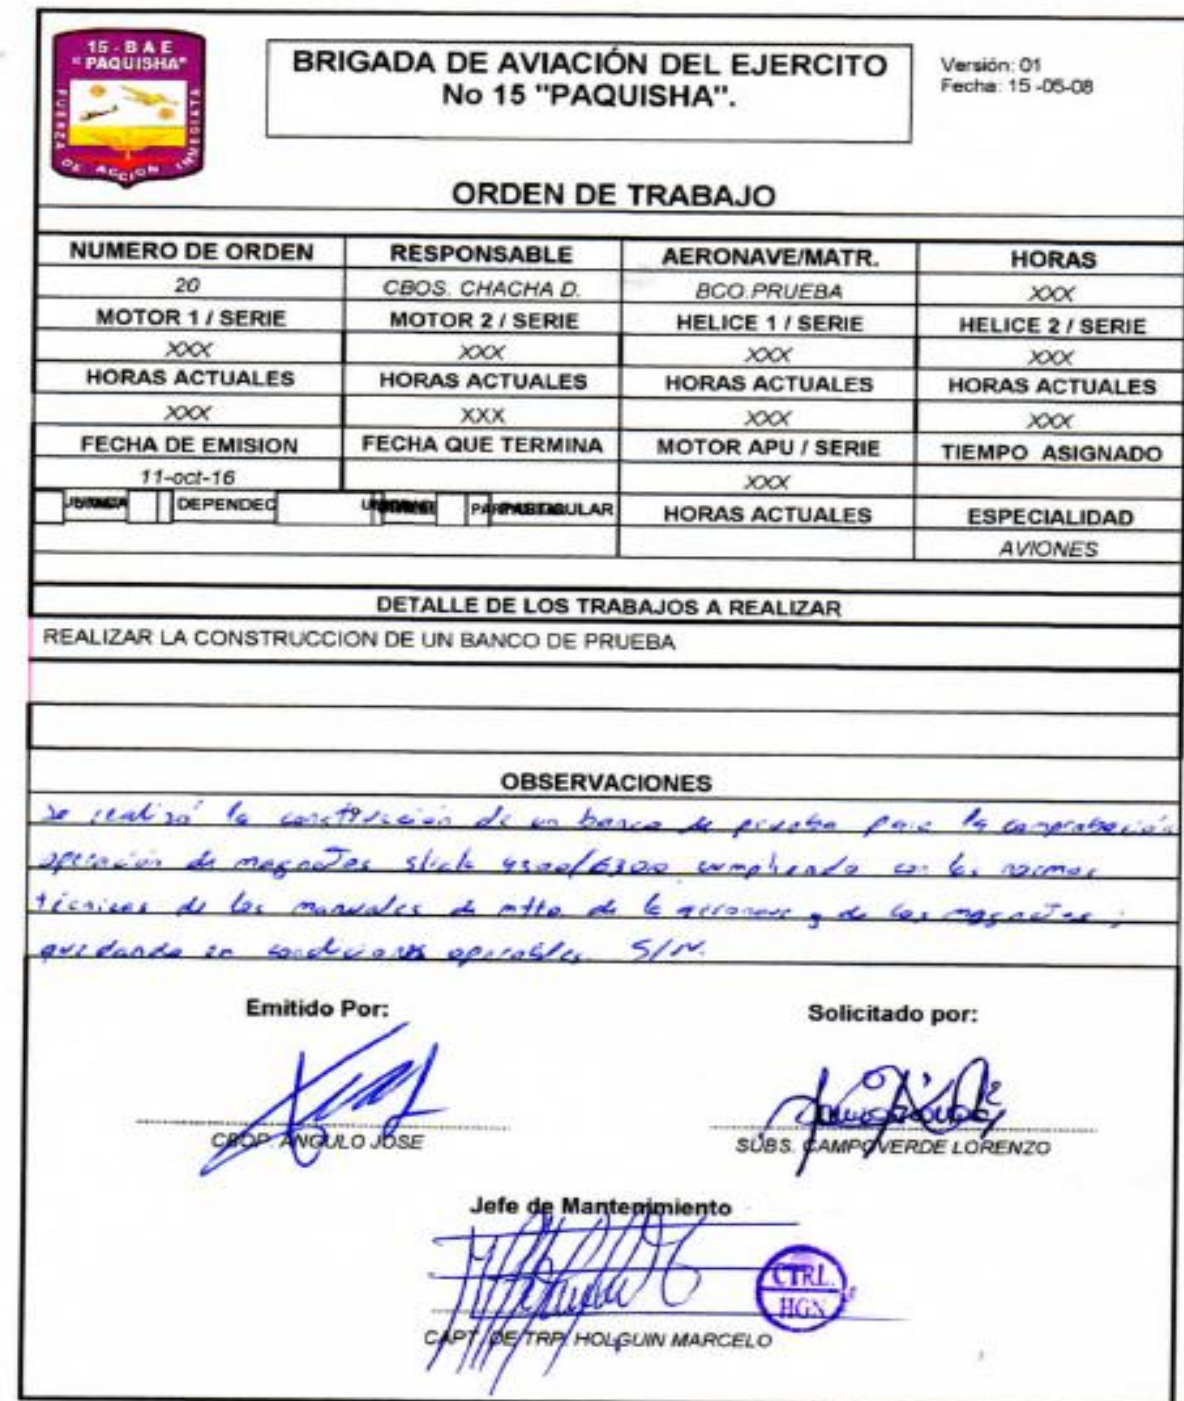 15 - B A E
"PAQUISHA"
FUERZA DE ACCION INMEDIATA
BRIGADA DE AVIACIÓN DEL EJERCITO
No 15 "PAQUISHA".
Versión: 01
Fecha: 15 -05-08
ORDEN DE TRABAJO
NUMERO DE ORDEN RESPONSABLE AERONAVE/MATR. HORAS
20 CBOS. CHACHA D. BCO.PRUEBA XXX
MOTOR 1 / SERIE MOTOR 2 / SERIE HELICE 1 / SERIE HELICE 2 / SERIE
XXX XXX XXX XXX
HORAS ACTUALES HORAS ACTUALES HORAS ACTUALES HORAS ACTUALES
XXX XXX XXX XXX
FECHA DE EMISION FECHA QUE TERMINA MOTOR APU / SERIE TIEMPO ASIGNADO
11-oct-16 XXX
DEPENDEC HORAS ACTUALES ESPECIALIDAD
AVIONES
DETALLE DE LOS TRABAJOS A REALIZAR
REALIZAR LA CONSTRUCCION DE UN BANCO DE PRUEBA
OBSERVACIONES
Se realizó la construcción de un banco de prueba para la comprobación
operación de magnetos slick 4300/6300 cumpliendo con las normas
técnicas de los manuales de mtto de la aeronave y de los magnetos;
quedando en condiciones operables. S/N.
Emitido Por: Solicitado por:
CBOP. ANGULO JOSE SUBS. CAMPOVERDE LORENZO
Jefe de Mantenimiento
CTRL.
HGN
CAPT. DE TRP. HOLGUIN MARCELO